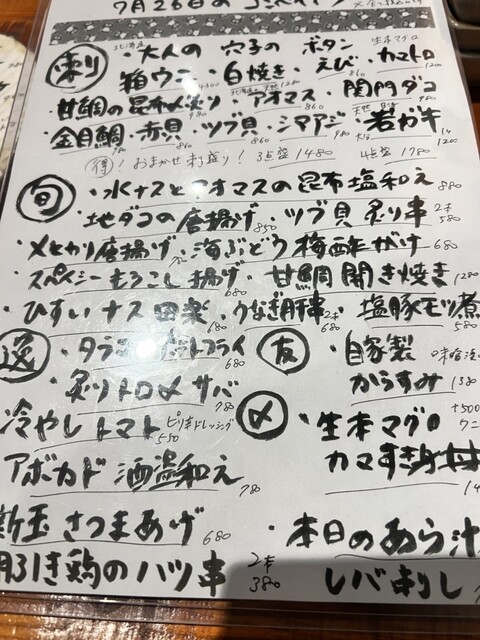 7月26日の
北海道 生本マグロ
刺り ・大人の 穴子の ボタン
箱ウニ・白焼き・えび・カマトロ
860 1200
甘鯛の昆布〆炙り・アオマス・関門ダコ
980 860
金目鯛・赤貝・ツブ貝・シマアジ・岩ガキ
860 860 980 1200
得!おまかせ刺盛り! 3点盛 1480 4点盛 1780
旬 ・水ナスとアオマスの昆布塩和え 880
・地ダコの唐揚げ 850・ツブ貝 炙り串 2本 580
・メヒカリ唐揚げ・海ぶどう梅酢がけ 680
・スパイシーもろこし揚げ・甘鯛開き焼き 1280
680
・ひすいナス田楽・うなぎ肝串 塩豚モツ煮
2本 680 580
逸 ・タラコ フライ 680
友 ・自家製 からすみ 1380
・炙りトロ〆サバ 780
〆 ・生本マグロ カマすき身丼
+500
冷やしトマト ピリ辛ドレッシング 550
アボカド酒盗和え 780
新玉さつまあげ 680
・本日のあら汁
月引き鶏のハツ串 2本 380
レバ刺し